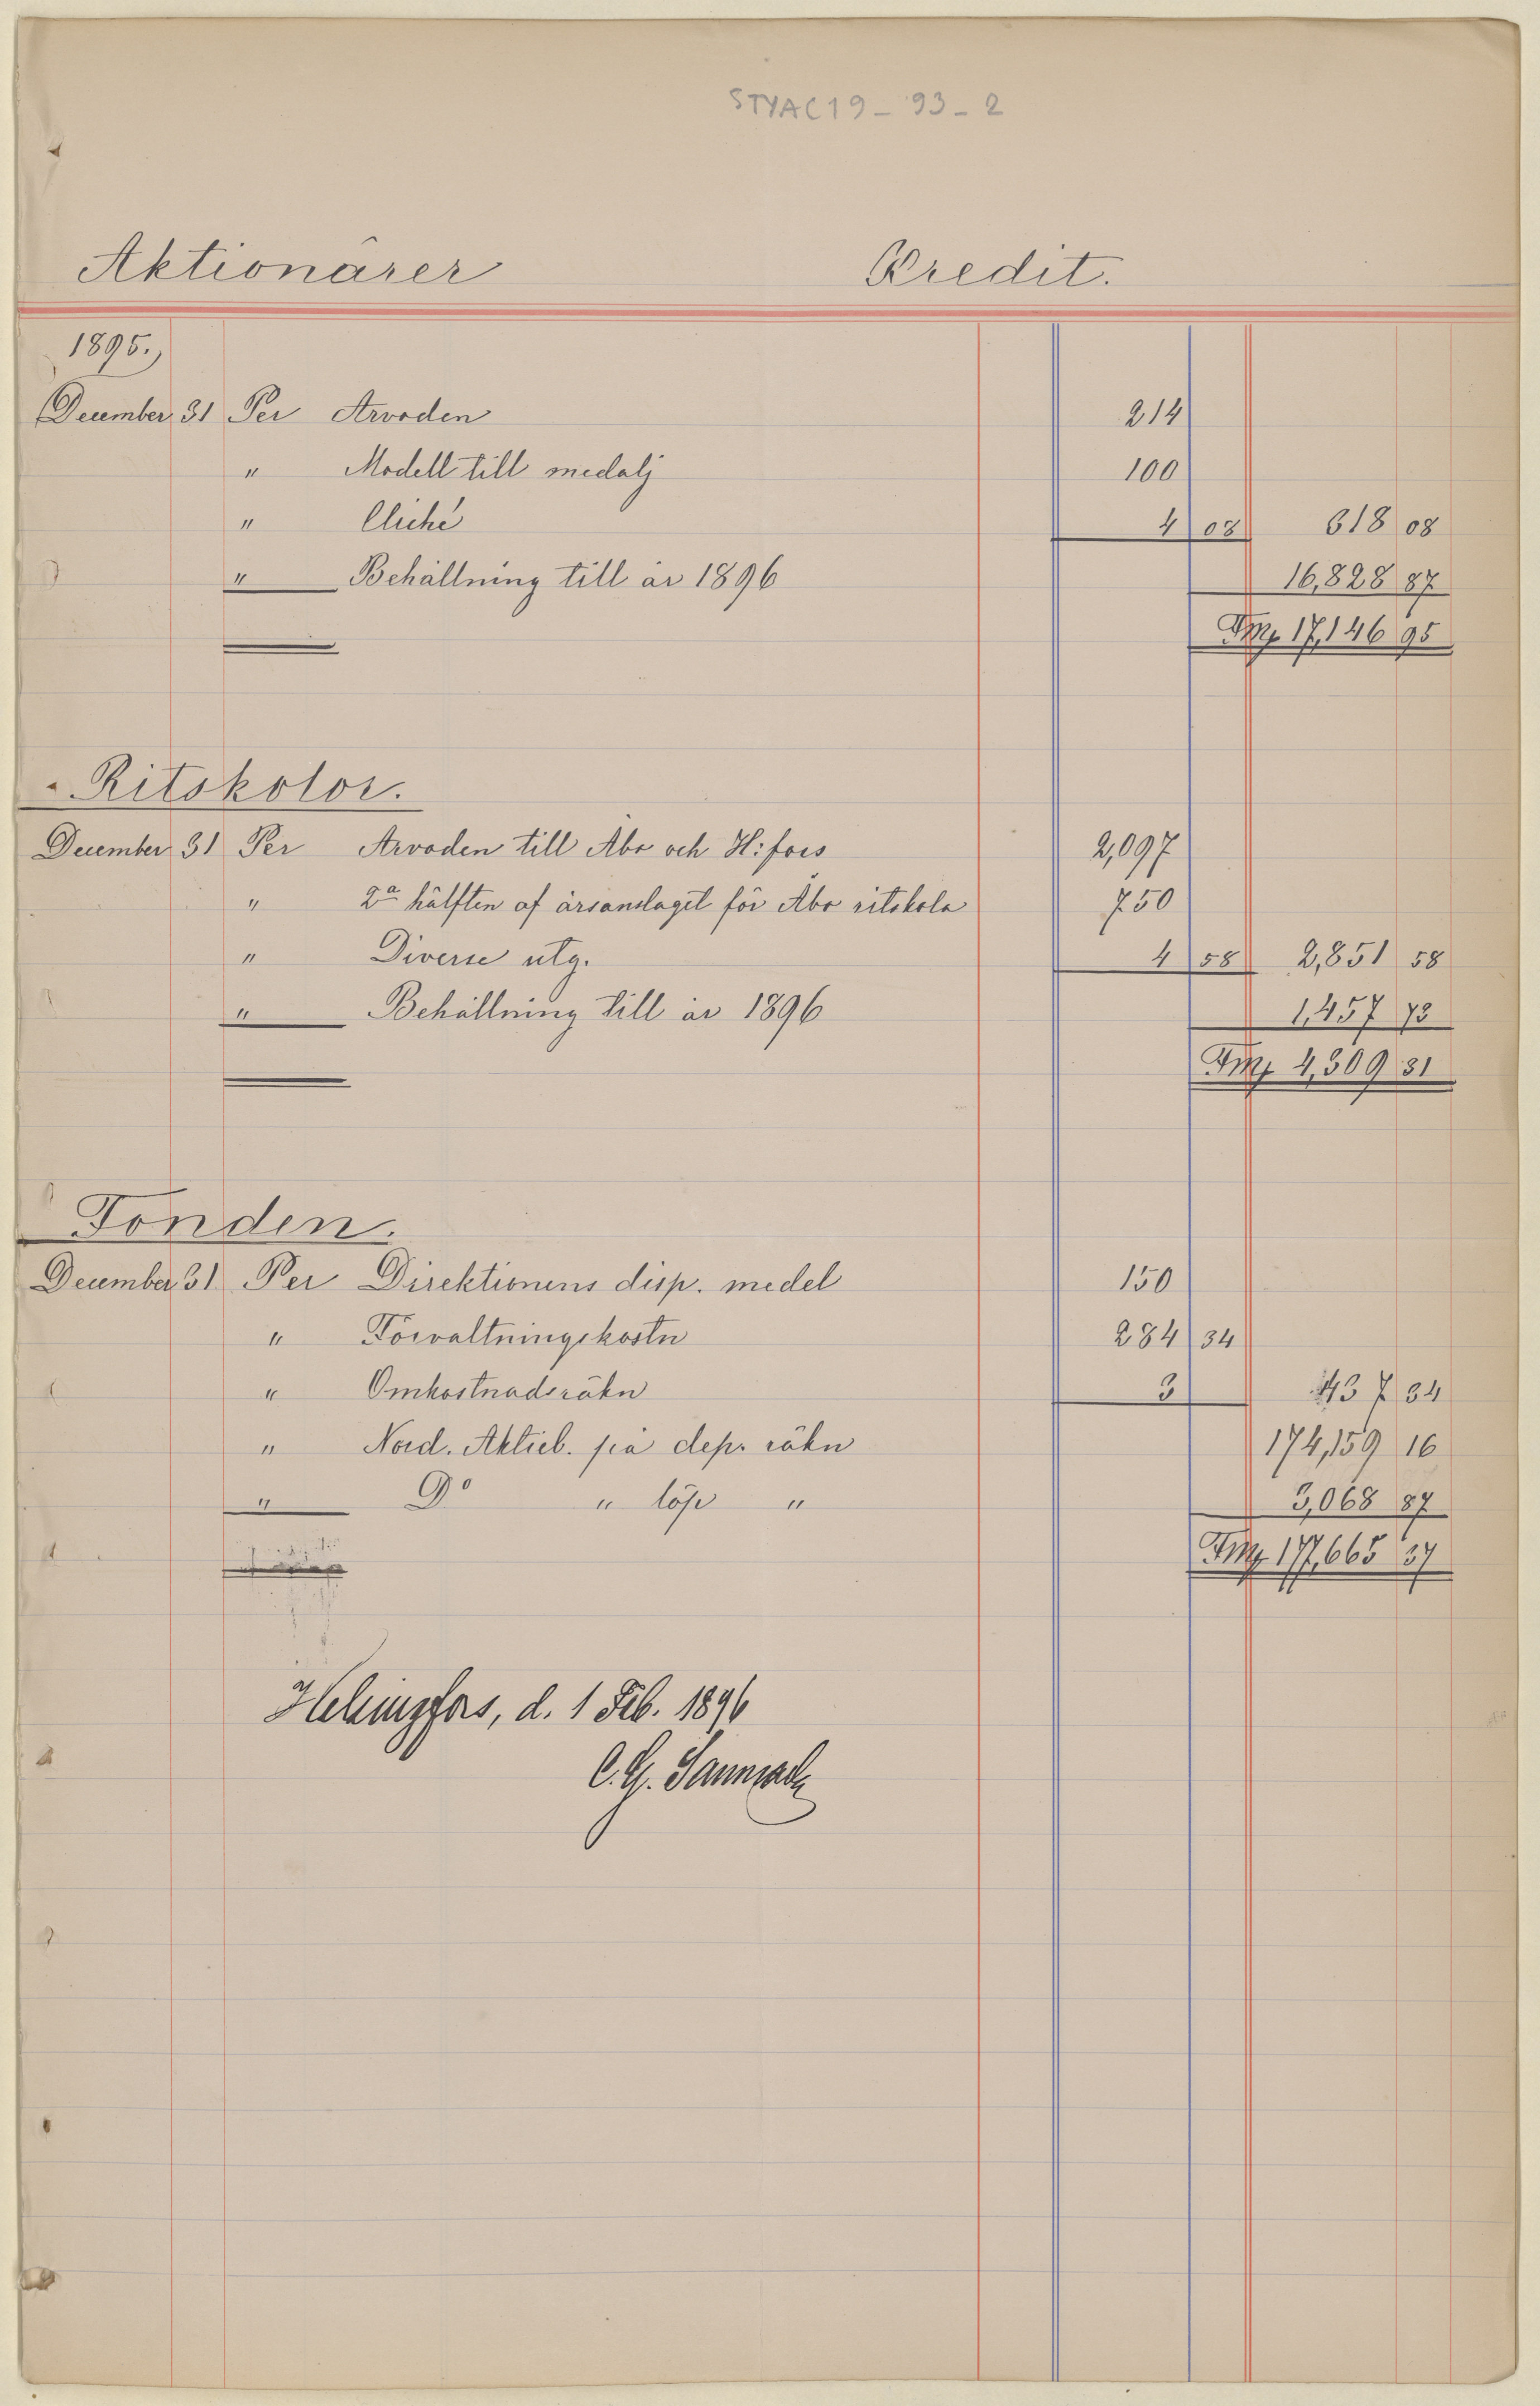 STYAC19-93-2
Aktionärer Kredit.
1895.
December 31 Per Arvoden 214
" Modell till medalj 100
" Cliché 4 08 318 08
" Behållning till år 1896 16,828 87
Fmk 17,146 95
Ritskolor.
December 31 Per Arvoden till Åbo och H:fors 2,097
" 2a hälften af årsanslaget för Åbo ritskola 750
" Diverse utg. 4 58 2,851 58
" Behållning till år 1896 1,457 73
Fmk 4,309 31
Fonden.
December 31 Per Direktionens disp. medel 150
" Förvaltningskostn 284 34
" Omkostnadsräkn 3 437 34
" Nord. Aktieb. på dep. räkn 174,159 16
" Do " löp " 3,068 87
Fmk 177,665 37
Helsingfors, d. 1 Feb. 1896
C. G.